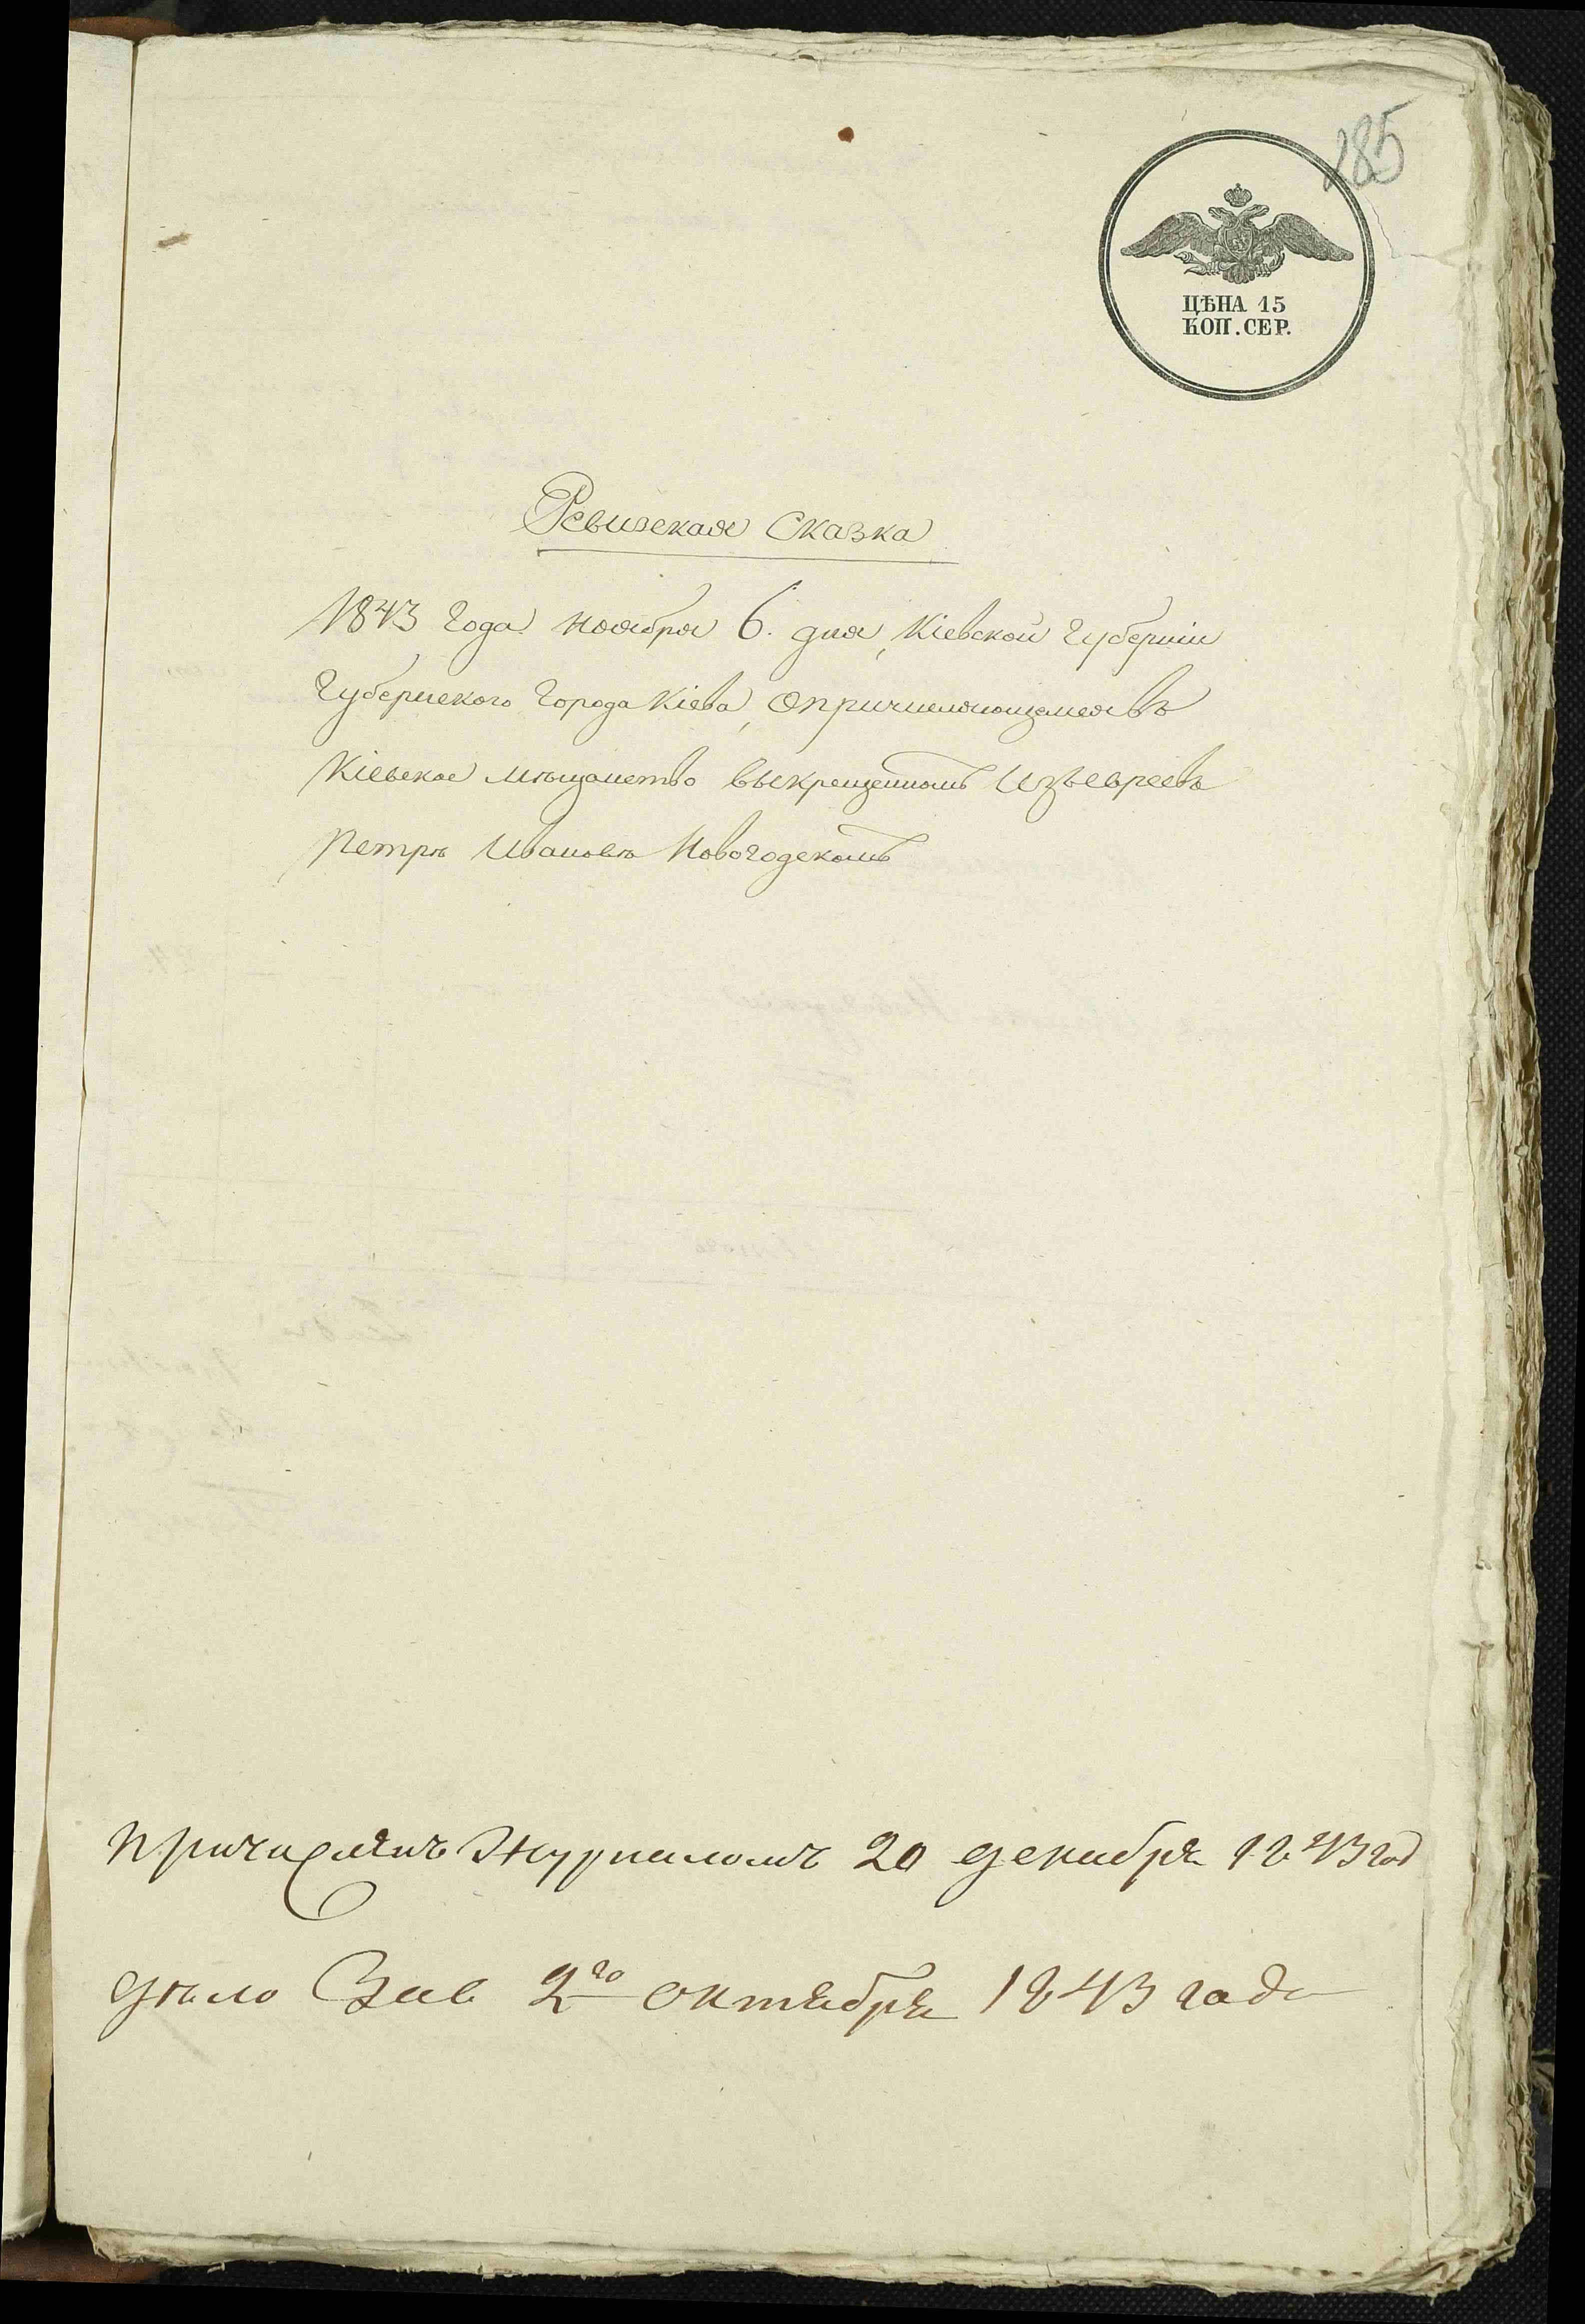 285
ЦѢНА 15
КОП. СЕР.
Ревизская Сказка
1843 Года Ноября 6. дня, Кіевской Губерніи
Губернского Города Кіева, опричисляющемся въ
Кіевское мѣщанство выкрещенномъ изъ евреевъ
Петрѣ Ивановѣ Новогодскомъ
причисленъ Журналомъ 20 декабря 1843 год
дѣло 2го октября 1843 года